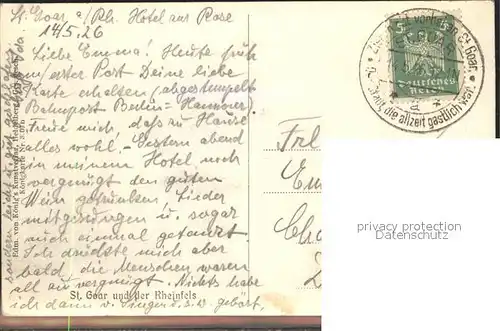 St. Goar a/Rh. Hotel zur Rose
14/5.26
Liebe Emma! Heute früh
m/erster Post Deine liebe
Karte erhalten (abgestempelt
Bahnpost Berlin-Hannover)
Freue mich, daß zu Hause
alles wohl. - Gestern abend
in meinem Hotel noch
vergnügt den guten
Wein getrunken, Lieder
mitgesungen u. sogar
auch einmal getanzt.
Ich drückte mich aber
bald, die Menschen waren
all zu vergnügt. Nichts habe
ich dann v. Singen u.s.w. gehört,
sondern leicht u. gut
St. Goar und der Rheinfels
Rhm. von König's Kunstverlag, Heidelberg
Königkarte
5
Deutsches
Reich
ST. GOAR
St. Goar,
Stadt die allzeit gastlich war.
Frl.
privacy protection
Datenschutz